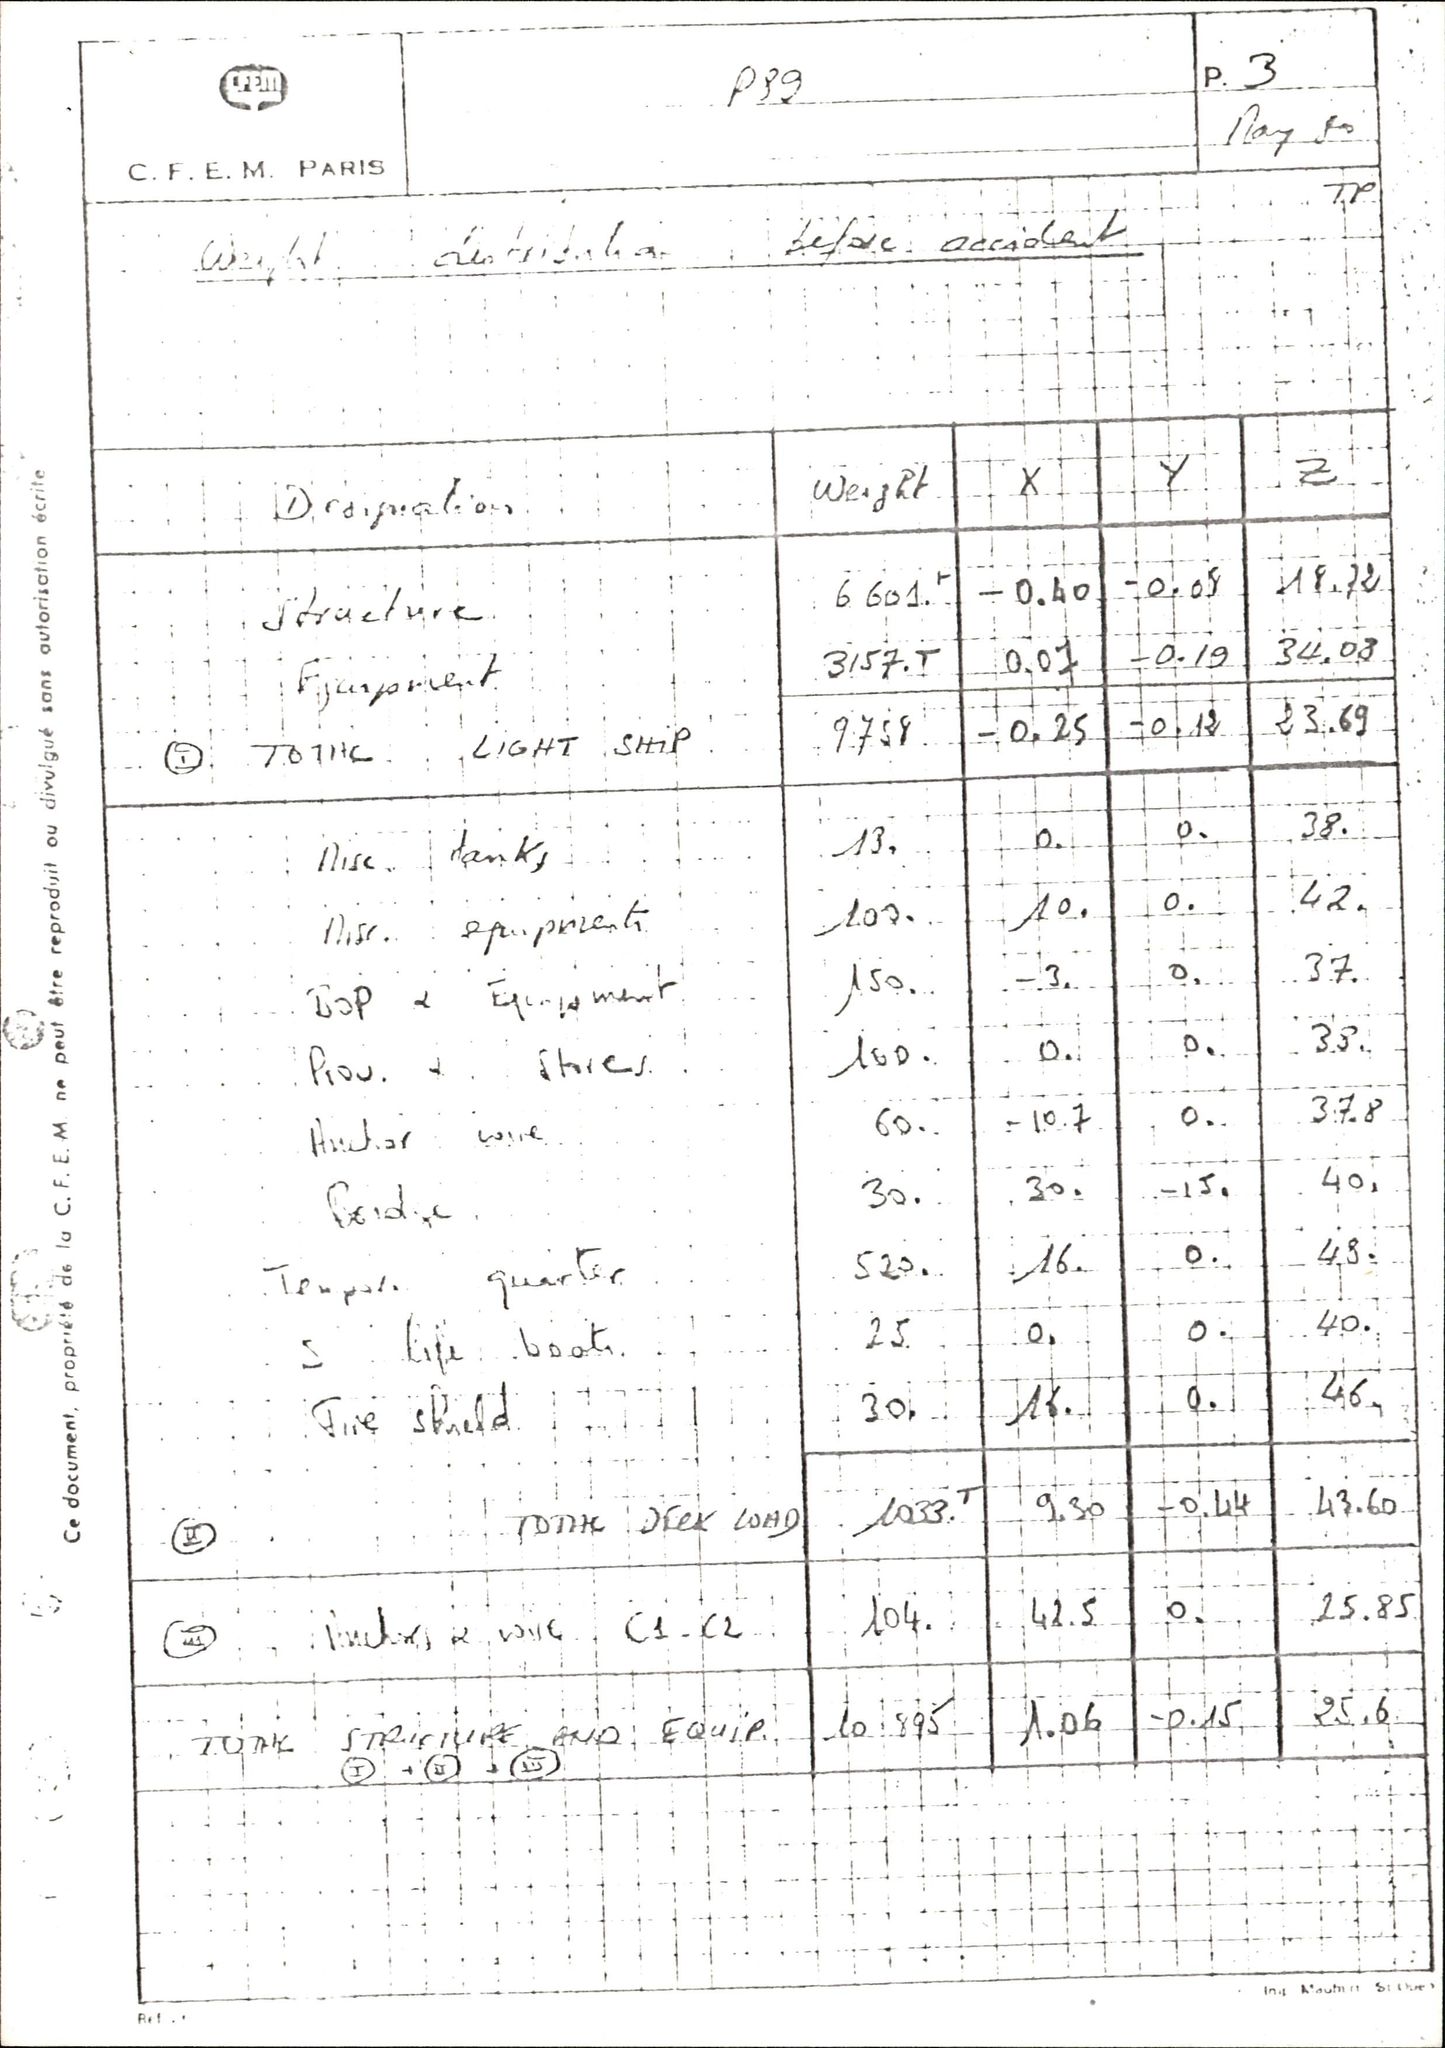 CFEM
C. F. E. M. PARIS
P89
P. 3
May 80
TP
Weight distribution before accident
Designation Weight X Y Z
Structure 6 601.T -0.40 -0.08 18.72
Equipment 3157.T 0.07 -0.19 34.08
I TOTAL LIGHT SHIP 9758 -0.25 -0.12 23.69
Misc. tanks 13. 0. 0. 38.
Misc. equipments 10. 0. 42.
BOP & Equipment 150. -3. 0. 37.
Prov. & Stores 0. 0. 38.
Anchor wire 60. -10.7 0. 37.8
Bridge 30. 30. -15. 40.
Tempor. quarter 520. 16. 0. 48.
5 life boats 25 0. 0. 40.
Fire shield 30. 16. 0. 46.
II TOTAL DECK LOAD 1033.T 9.30 -0.44 43.60
III Anchors & wire C1-C2 104. 42.5 0. 25.85
TOTAL STRUCTURE AND EQUIP. 10 895 1.06 -0.15 25.6
I + II + III
Ce document, propriété de la C.F.E.M. ne peut être reproduit ou divulgué sans autorisation écrite
Ref.